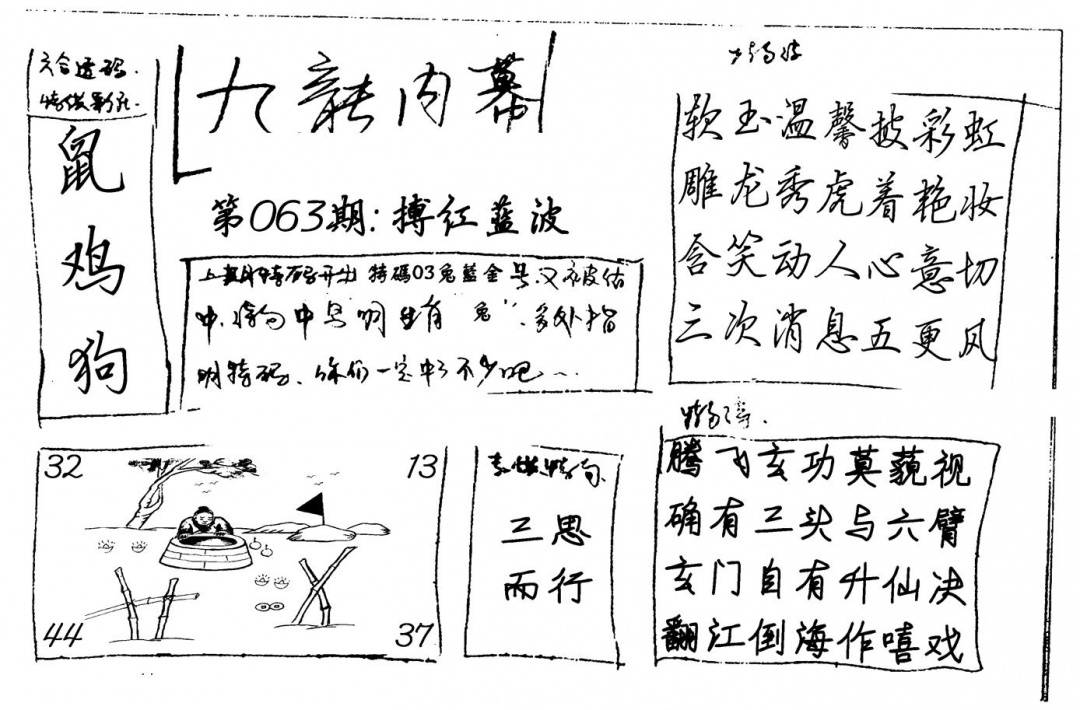 六合透码
鼠
鸡
狗
九龍内幕
第063期:搏红蓝波
上期特码开出 特碼03兔藍金号,又被估
中,中号明生有“兔”,多处指
明特码,你们一定中了不少吧~
软玉温馨披彩虹
雕龙秀虎着艳妆
含笑动人心意切
三次消息五更风
32
13
44
37
三思
而行
腾飞玄功莫藐视
确有三头与六臂
玄门自有升仙决
翻江倒海作嘻戏